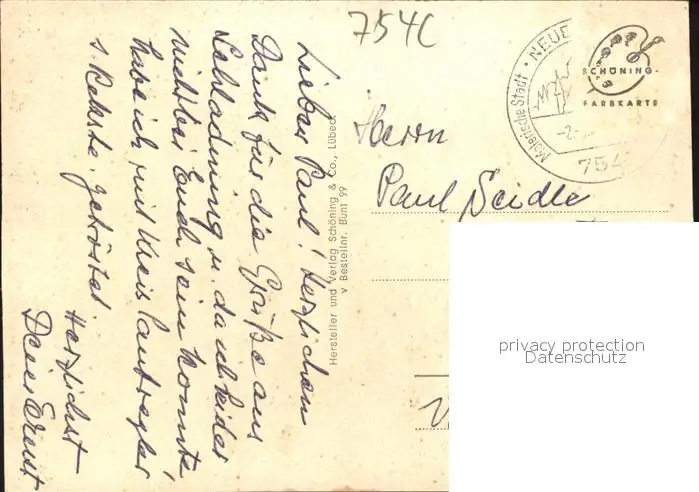 754C
Lieber Paul! Herzlichen
Dank für die Grüße aus
Schladming u. da ich leider
nicht bei Euch sein konnte
habe ich mit
s. getröstet.
Herzlichst
Dein Ernst
Hersteller und Verlag Schöning & Co., Lübeck
v Bestellnr. Bunt 99
Malerische Stadt · NEUE
-2.
754
SCHÖNING-
FARBKARTE
Herrn
Paul Seidle
privacy protection
Datenschutz